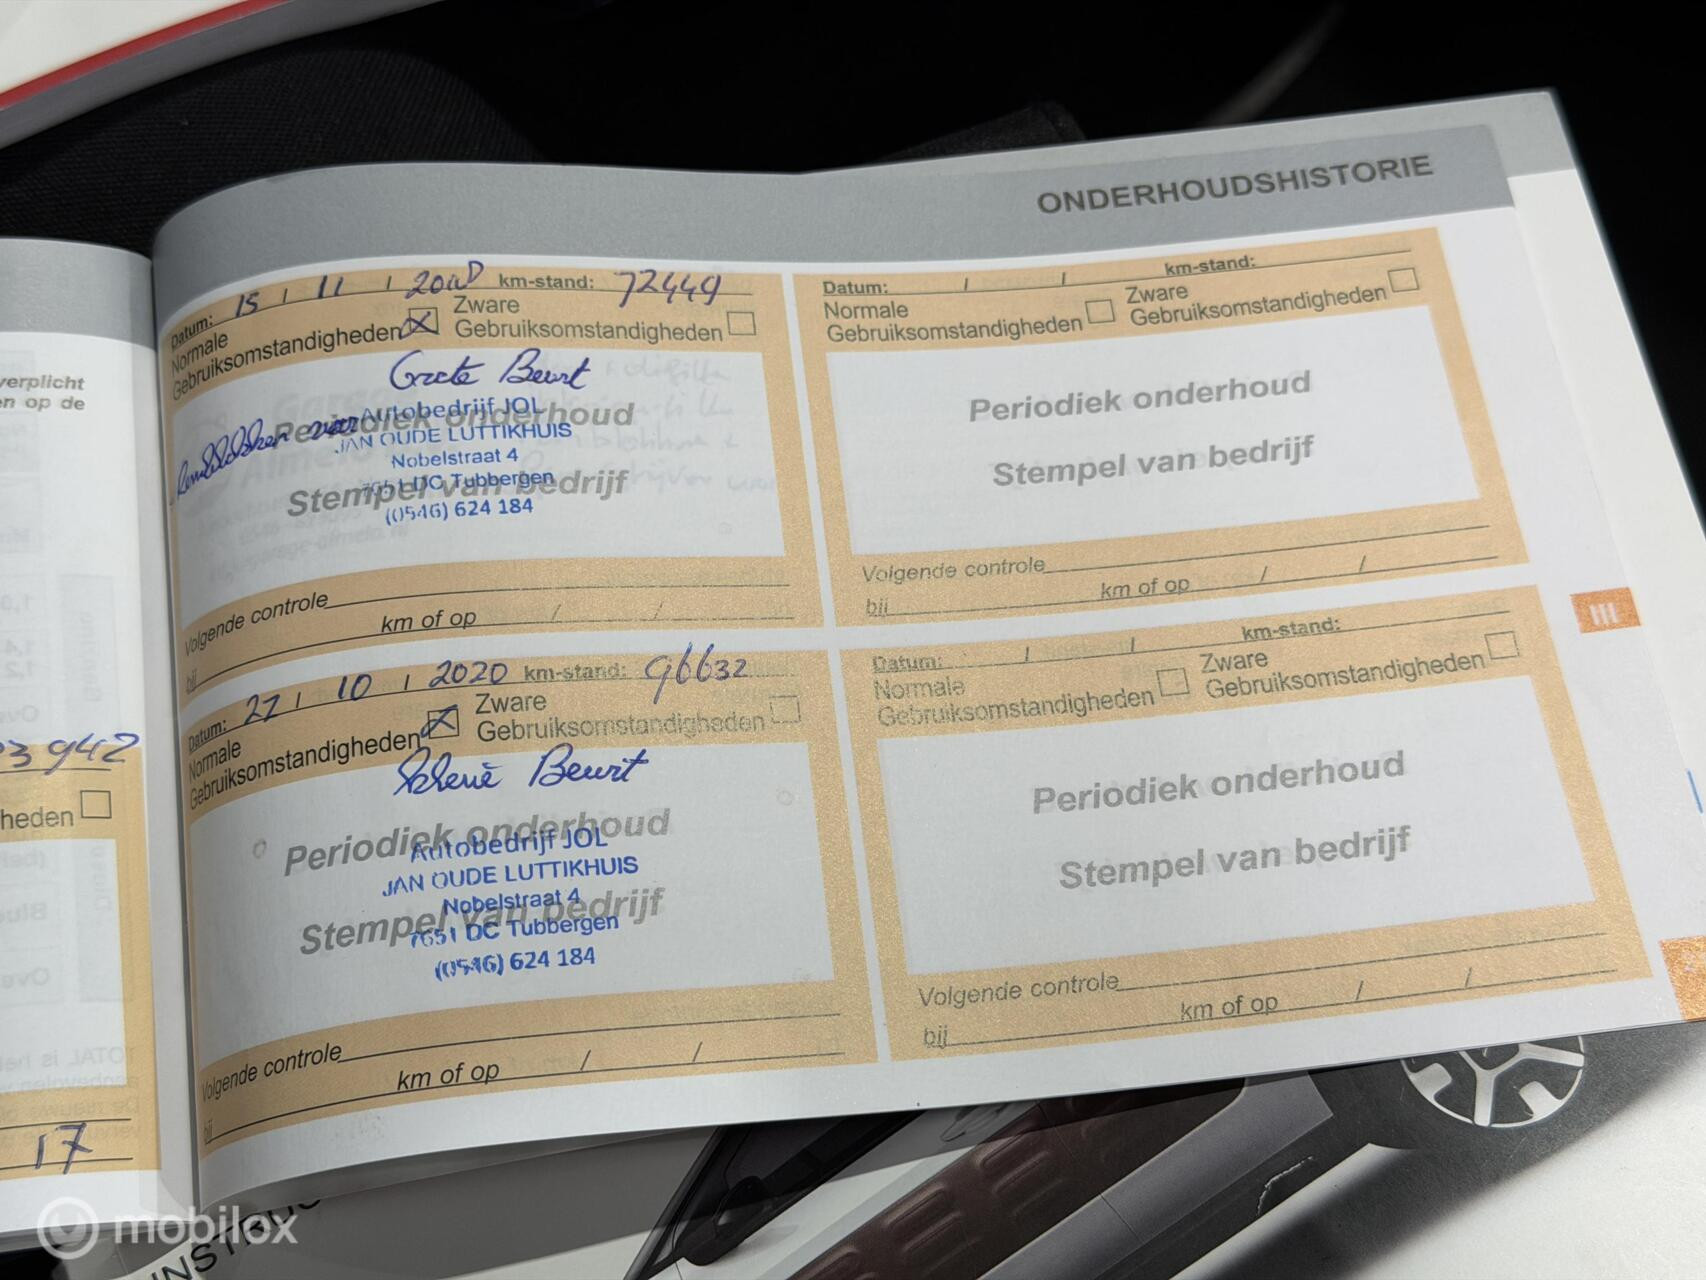 ONDERHOUDSHISTORIE
verplicht
en op de
Datum: 15 / 11 / km-stand: 72449
Normale
Gebruiksomstandigheden
Zware
Gebruiksomstandigheden
Grote Beurt
Periodiek onderhoud
Autobedrijf JOL
JAN OUDE LUTTIKHUIS
Nobelstraat 4
7651 DC Tubbergen
(0546) 624 184
Stempel van bedrijf
Volgende controle
bij km of op / /
Datum: / / km-stand:
Normale
Gebruiksomstandigheden
Zware
Gebruiksomstandigheden
Periodiek onderhoud
Stempel van bedrijf
Volgende controle
bij km of op / /
III
942
heden
17
Datum: 27 / 10 / 2020 km-stand: 96632
Normale
Gebruiksomstandigheden
Zware
Gebruiksomstandigheden
Beurt
Periodiek onderhoud
Autobedrijf JOL
JAN OUDE LUTTIKHUIS
Nobelstraat 4
7651 DC Tubbergen
(0546) 624 184
Stempel van bedrijf
Volgende controle
bij km of op / /
Datum: / / km-stand:
Normale
Gebruiksomstandigheden
Zware
Gebruiksomstandigheden
Periodiek onderhoud
Stempel van bedrijf
Volgende controle
bij km of op / /
mobilox